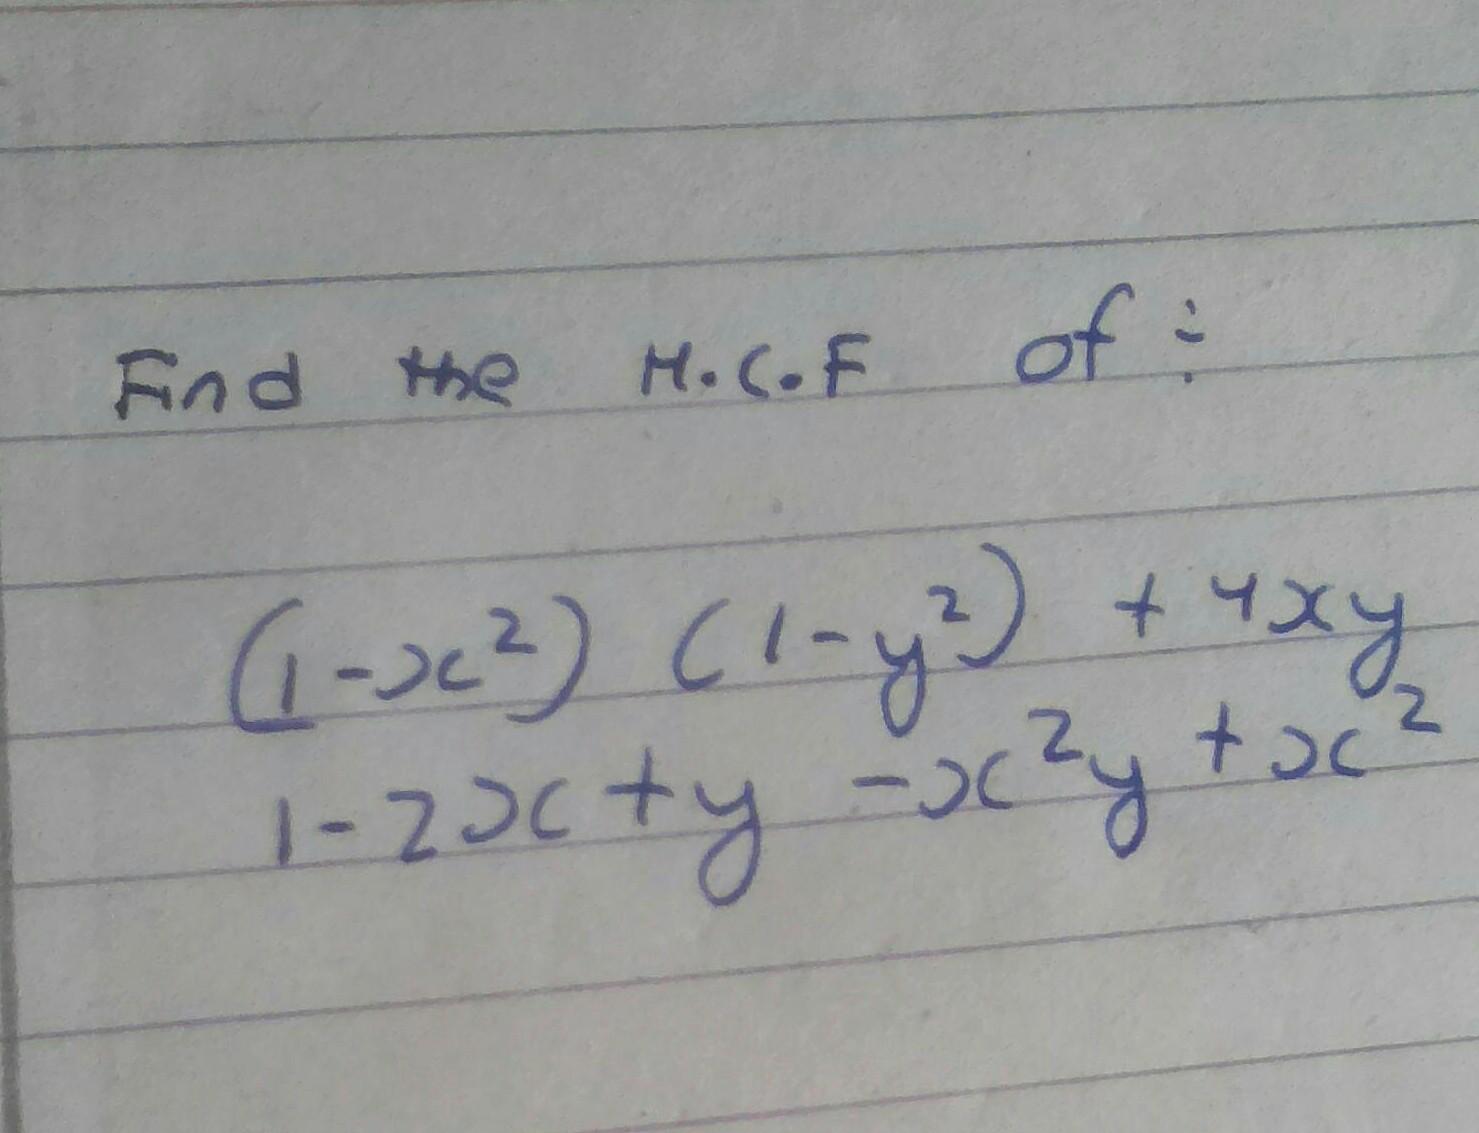 Find the H.C.F of :-
(1-x²) (1-y²) + 4xy
1-2x+y -x²y +x²